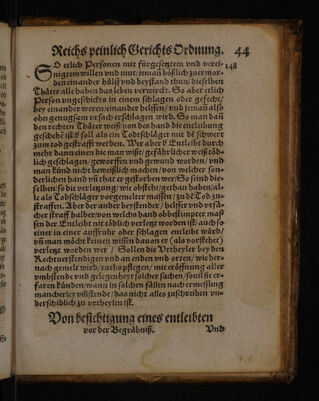 Reichs peinlich Gerichts Ordnung. 44
SO etlich Personen mit fürgesetztem vnd verei- 148
nigtem willen vnd mut / jemãt bößlich zuermor-
den einander hülff vnd beystand thun / dieselben
Thäter alle haben das leben verwirckt. So aber etlich
Person vngeschichts in einem schlagen oder gefecht /
bey einander weren / einander helffen / vnd jemãt also
ohn genugsam vrsach erschlagen wird. So man dañ
den rechten Thäter weiß / von des hand die entleibung
geschehẽ ist / dˀ soll als ein Todschläger mit dˀ schwert
zum tod gestrafft werden. Wer aber dˀ Entleibt durch
mehr dann einen die man wißt / gefährlicher weiß töd-
lich geschlagen / geworffen vnd gewund worden / vnd
man künd nicht beweißlich machen / von welcher son-
derlichen hand vñ that er gestorben wer: So seind die-
selben / so die verletzung / wie obsteht / gethan haben / al-
le als Todschläger vorgemelter massen / zu dˀ Tod zu-
straffen. Aber der ander beystender / helfer vnd vrsä-
cher straff halber / von welchs hand obbestimpter mas-
sen der Entleibt nit tödlich verletzt worden ist / auch so
einer in einer auffruhr oder schlagen entleibt würd /
vñ man möcht keinen wissen dauon er (als vorsteht)
verletzt worden wer / Sollen die Vrtheyler bey den
Rechtuerstendigen vnd an enden vnd orten / wie her-
nach gemelt wird / rathspflegen / mit eröffnung aller
vmbstende vnd gelegenheyt solcher sachen / souil sie er-
faren künden / wann in solchen fällen nach ermessung
mancherley vmstende / das nicht alles zuschreiben vn-
derschidlich zu vrtheylen ist.
Von besichtigung eines entleibten
vor der Begräbniß.
Vnd